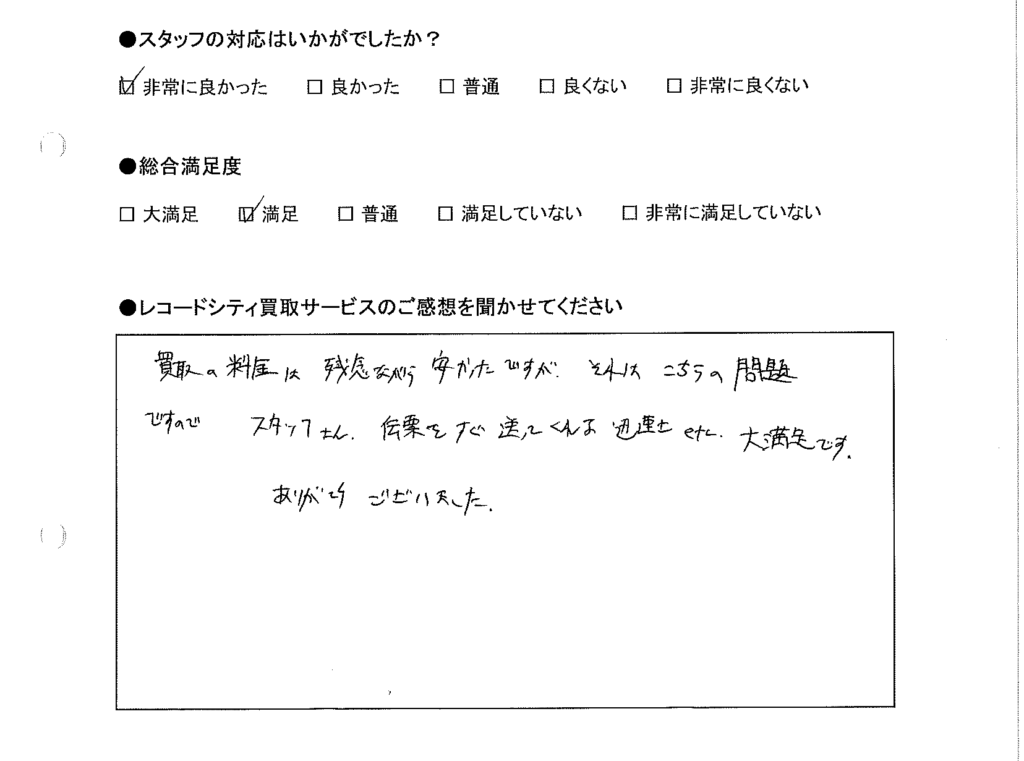 ●スタッフの対応はいかがでしたか？
☑ 非常に良かった □ 良かった □ 普通 □ 良くない □ 非常に良くない
●総合満足度
□ 大満足 ☑ 満足 □ 普通 □ 満足していない □ 非常に満足していない
●レコードシティ買取サービスのご感想を聞かせてください
買取の料金は 残念ながら 安かったですが、それは こちらの 問題
ですので スタッフさん、伝票をすぐ 送ってくれる 迅速さ etc. 大満足です.
ありがとう ございました.